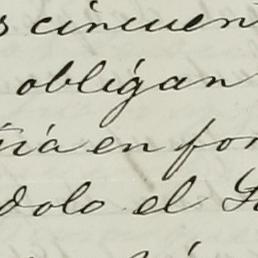 s cincuen
obligan
ria en for
dolo el